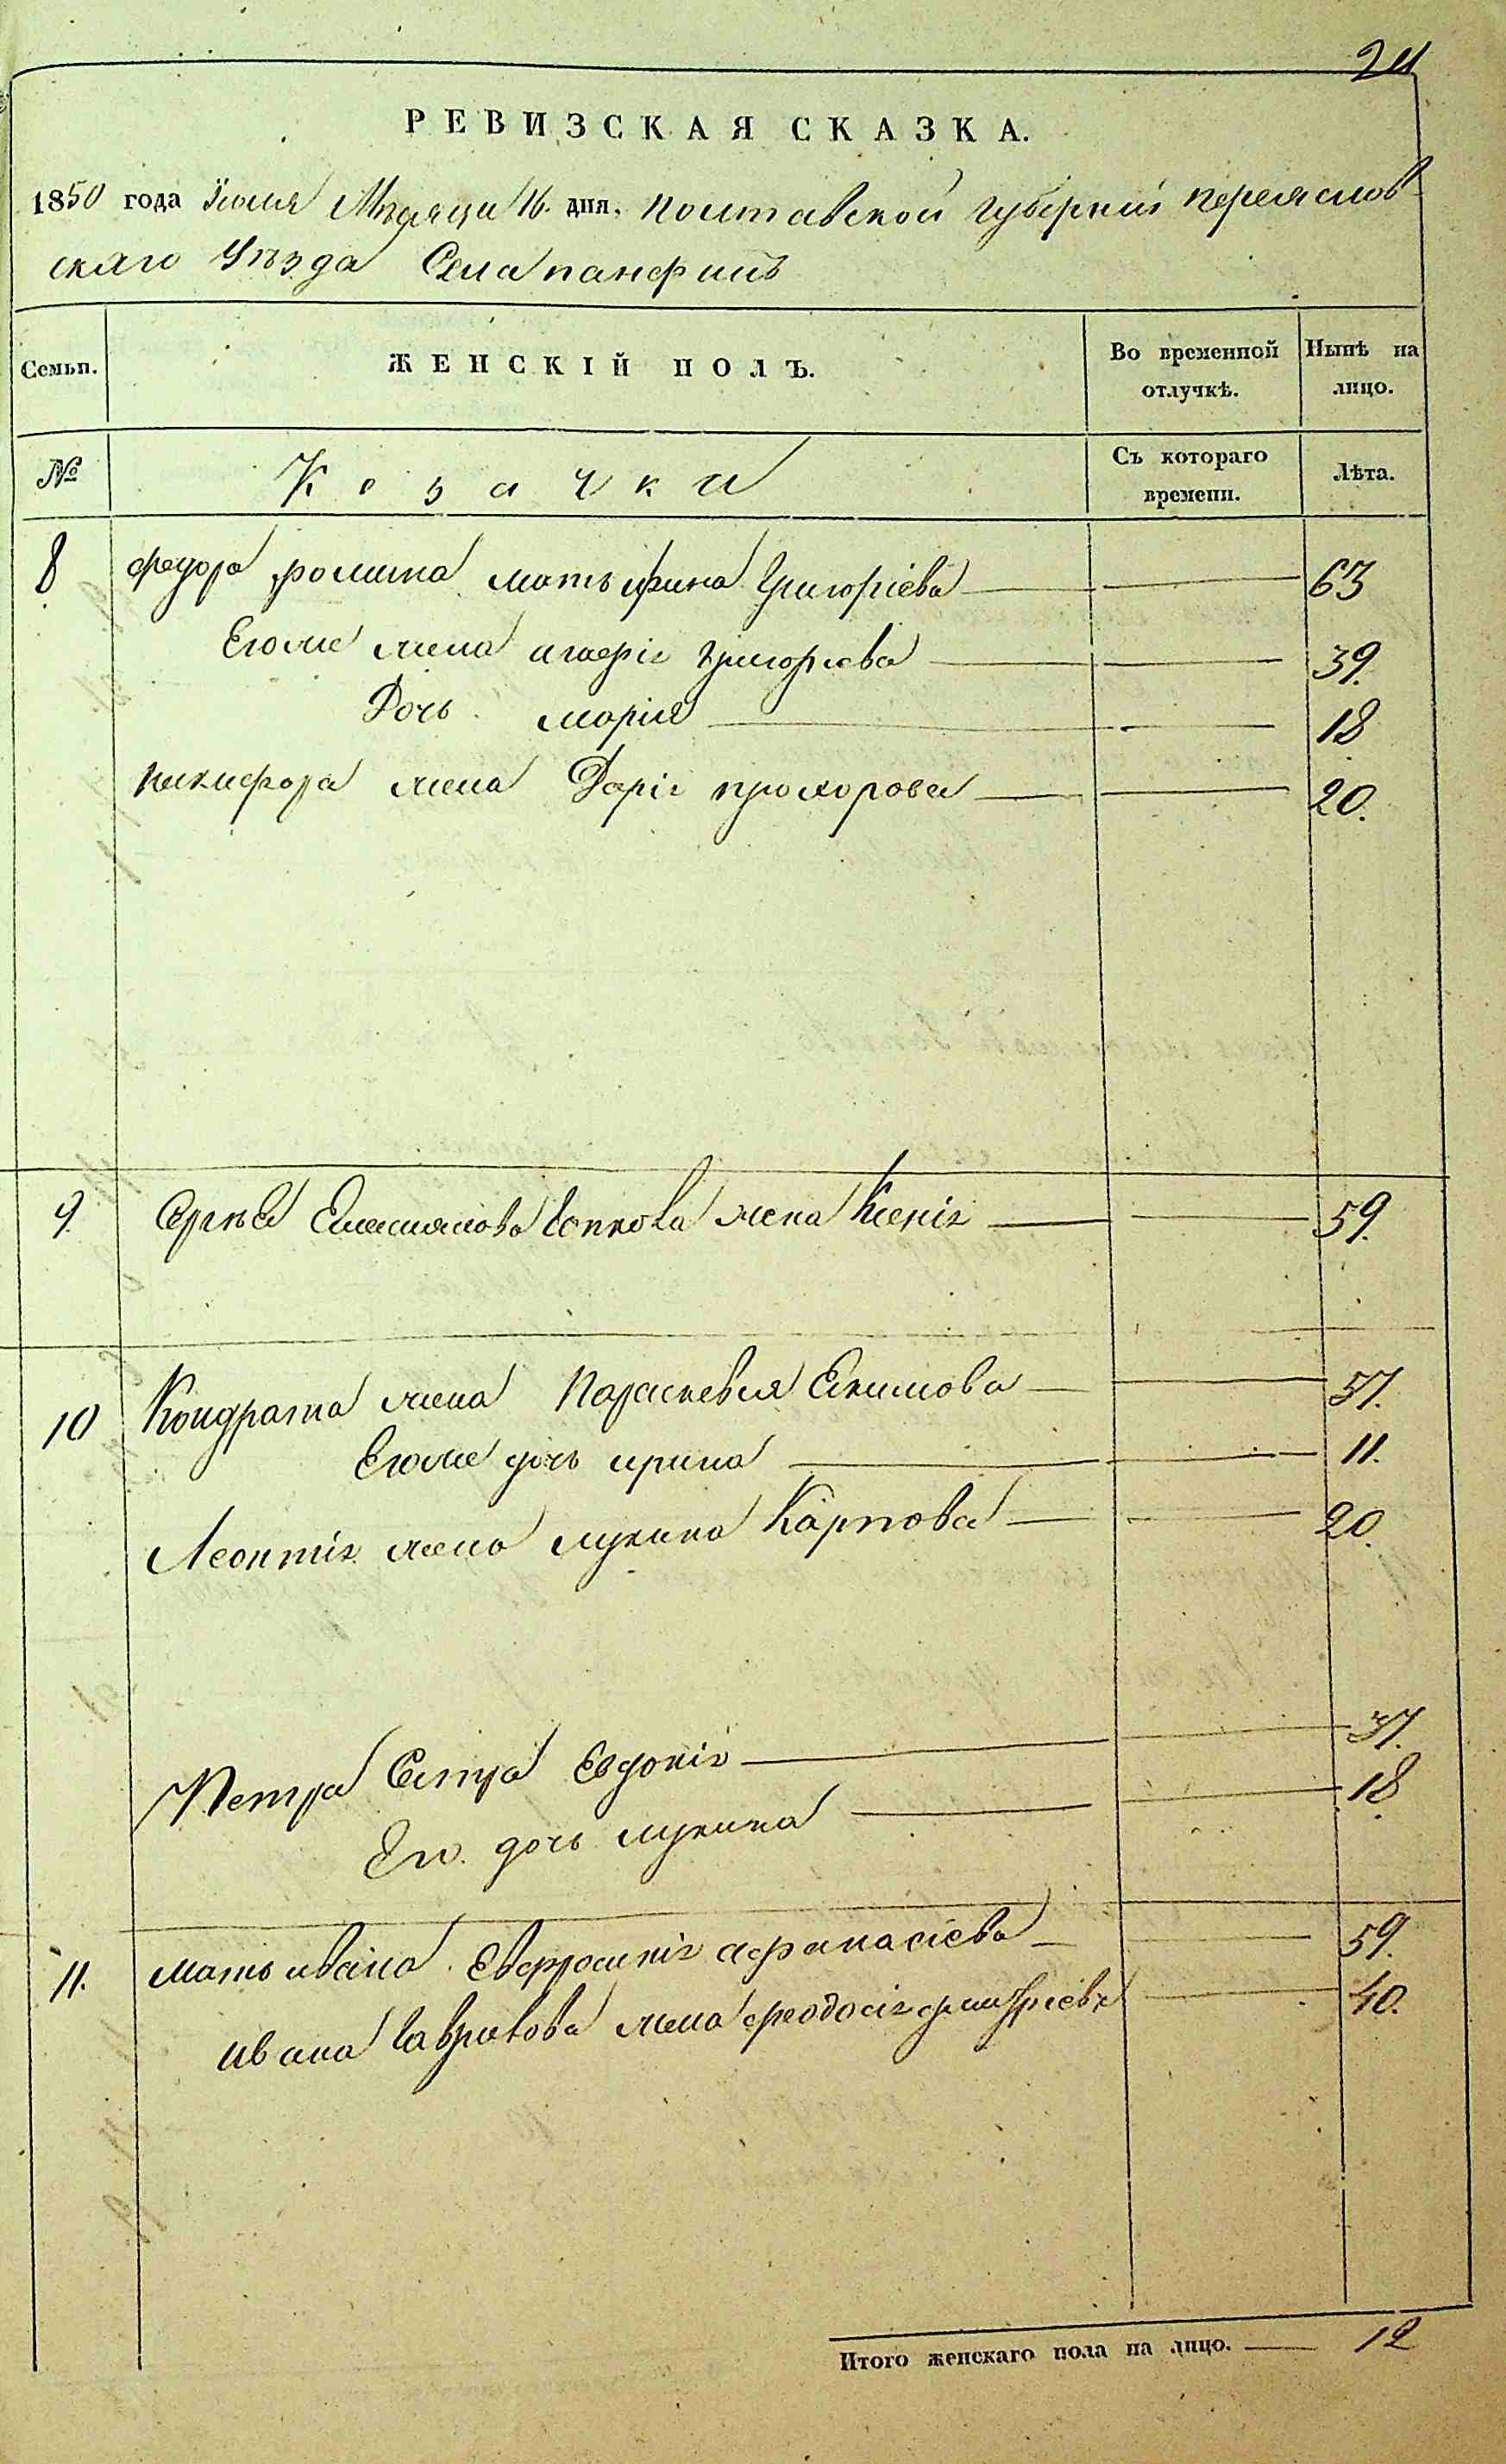 21
РЕВИЗСКАЯ СКАЗКА.
1850 года Июля Мѣсяца 16. дня, полтавской губерніи переяслов
скаго уѣзда Села панфилъ
Семьи. ЖЕНСКІЙ ПОЛЪ. Во временной отлучкѣ. Нынѣ на лицо.
№ Козачки Съ котораго времени. Лѣта.
8 федора мать Григоріева 63
Егоже жена Григориева 39.
Дочь марія 18
никифора жена Даріа прохорова 20.
9. Сергѣя Емельянова жена Ксеніа 59.
10 Кондрата жена Параскевия Екимова 37.
Егоже дочь ирина 11.
Леонтіа жена лукина Карпова 20.
Петра Сестра Евдокіа 37.
Его. дочь лукина 18.
11. мать ивана Евфросиніа афанасіева 59.
ивана Гаврилова жена феодосіа 40.
Итого женскаго пола на лицо. 12